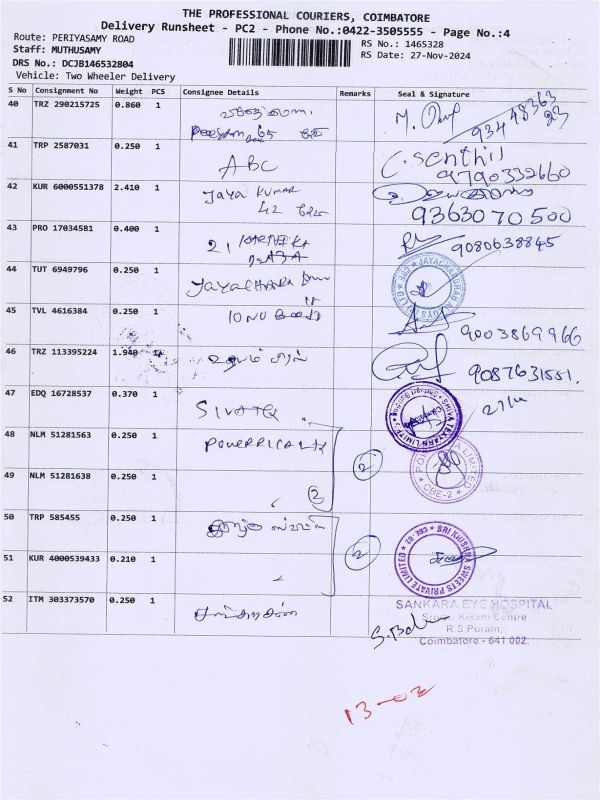 THE PROFESSIONAL COURIERS, COIMBATORE
Delivery Runsheet - PC2 - Phone No.:0422-3505555 - Page No.:4
Route: PERIYASAMY ROAD
RS No.: 1465328
Staff: MUTHUSAMY
RS Date: 27-Nov-2024
DRS No.: DCJB146532804
Vehicle: Two Wheeler Delivery
S No Consignment No Weight PCS Consignee Details Remarks Seal & Signature
40 TRZ 290215725 0.860 1
41 TRP 2587031 0.250 1 ABC C. Senthil 9790332660
42 KUR 6000551378 2.410 1 Jaya Kumar 42 9363070500
43 PRO 17034581 0.400 1 9080638845
44 TUT 6949796 0.250 1 JAYACHANDRAN ALLOYS (P) LTD
45 TVL 4616384 0.250 1 9003869966
46 TRZ 113395224 1.940 1 9087631551.
47 EDQ 16728537 0.370 1 SIVATEX SHIVA TEXYARN LIMITED
48 NLM 51281563 0.250 1 LIMITED CBE-2
49 NLM 51281638 0.250 1 2 2
50 TRP 585455 0.250 1
51 KUR 4000539433 0.210 1 2 SRI KRISHNA SWEETS PRIVATE LIMITED
52 ITM 303373570 0.250 1 SANKARA EYE HOSPITAL
Kikani Centre
R.S.Puram,
Coimbatore - 641 002.
13-02